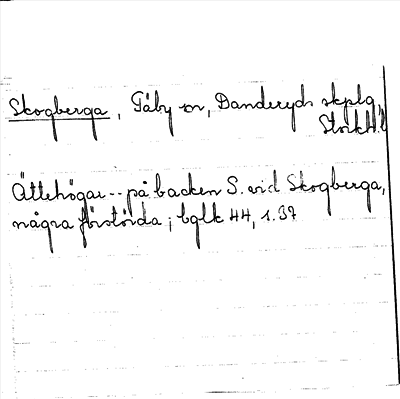 Skogberga, Täby sn, Danderyds skplg
Stockh. l
Ättehögar -- på backen S. vid Skogberga,
några förstörda; bglk 44, 1.37